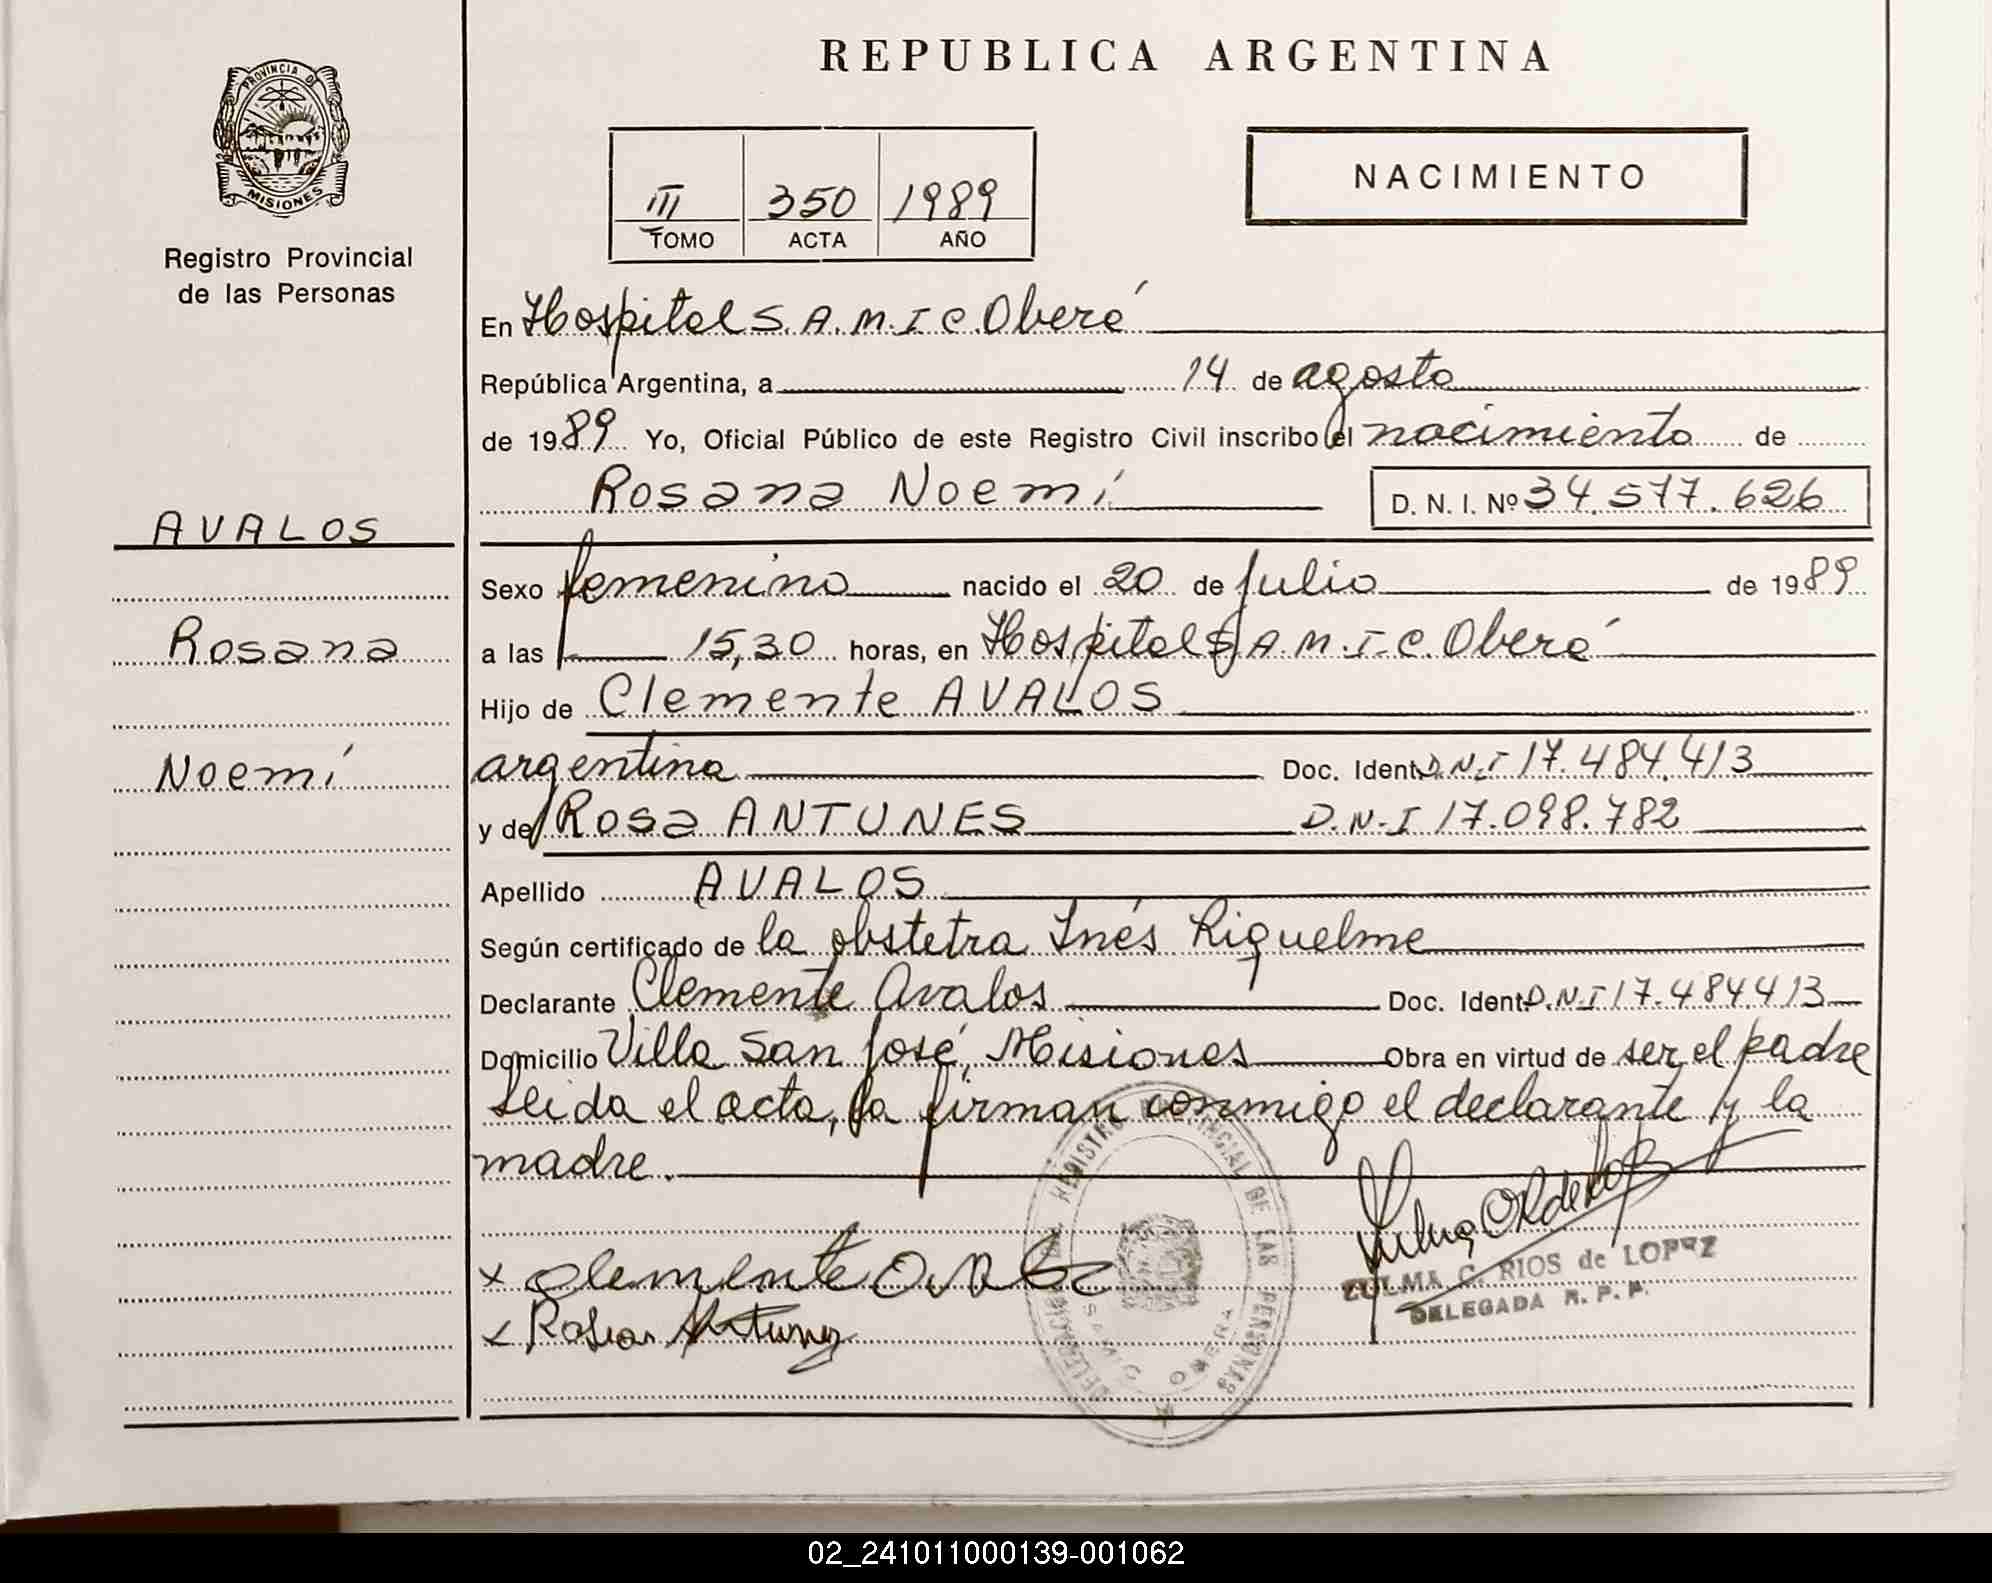 REPUBLICA ARGENTINA
PROVINCIA DE
MISIONES
Registro Provincial
de las Personas
NACIMIENTO
III 350 1989
TOMO ACTA AÑO
En Hospital S.A.M.I.C. Oberá
República Argentina, a 14 de agosto
de 1989 Yo, Oficial Público de este Registro Civil inscribo el nacimiento de
Rosana Noemí D. N. I. Nº 34.577.626
AVALOS
Rosana
Noemí
Sexo femenino nacido el 20 de julio de 1989
a las 15,30 horas, en Hospital S.A.M.I.C. Oberá
Hijo de Clemente AVALOS
argentina Doc. Ident. D.N.I 17.484.413
y de Rosa ANTUNES D.N.I 17.098.782
Apellido AVALOS
Según certificado de la obstetra Inés Riquelme
Declarante Clemente Avalos Doc. Ident. D.N.I 17.484413
Domicilio Villa San José, Misiones Obra en virtud de ser el padre
Leida el acta, la firman conmigo el declarante y la
madre.
x clemente
x Rosa Antunez
DELEGACION REGISTRO PROVINCIAL DE LAS PERSONAS
SAMIC OBERA
ZULMA C. RIOS de LOPEZ
DELEGADA R. P. P.
02_241011000139-001062